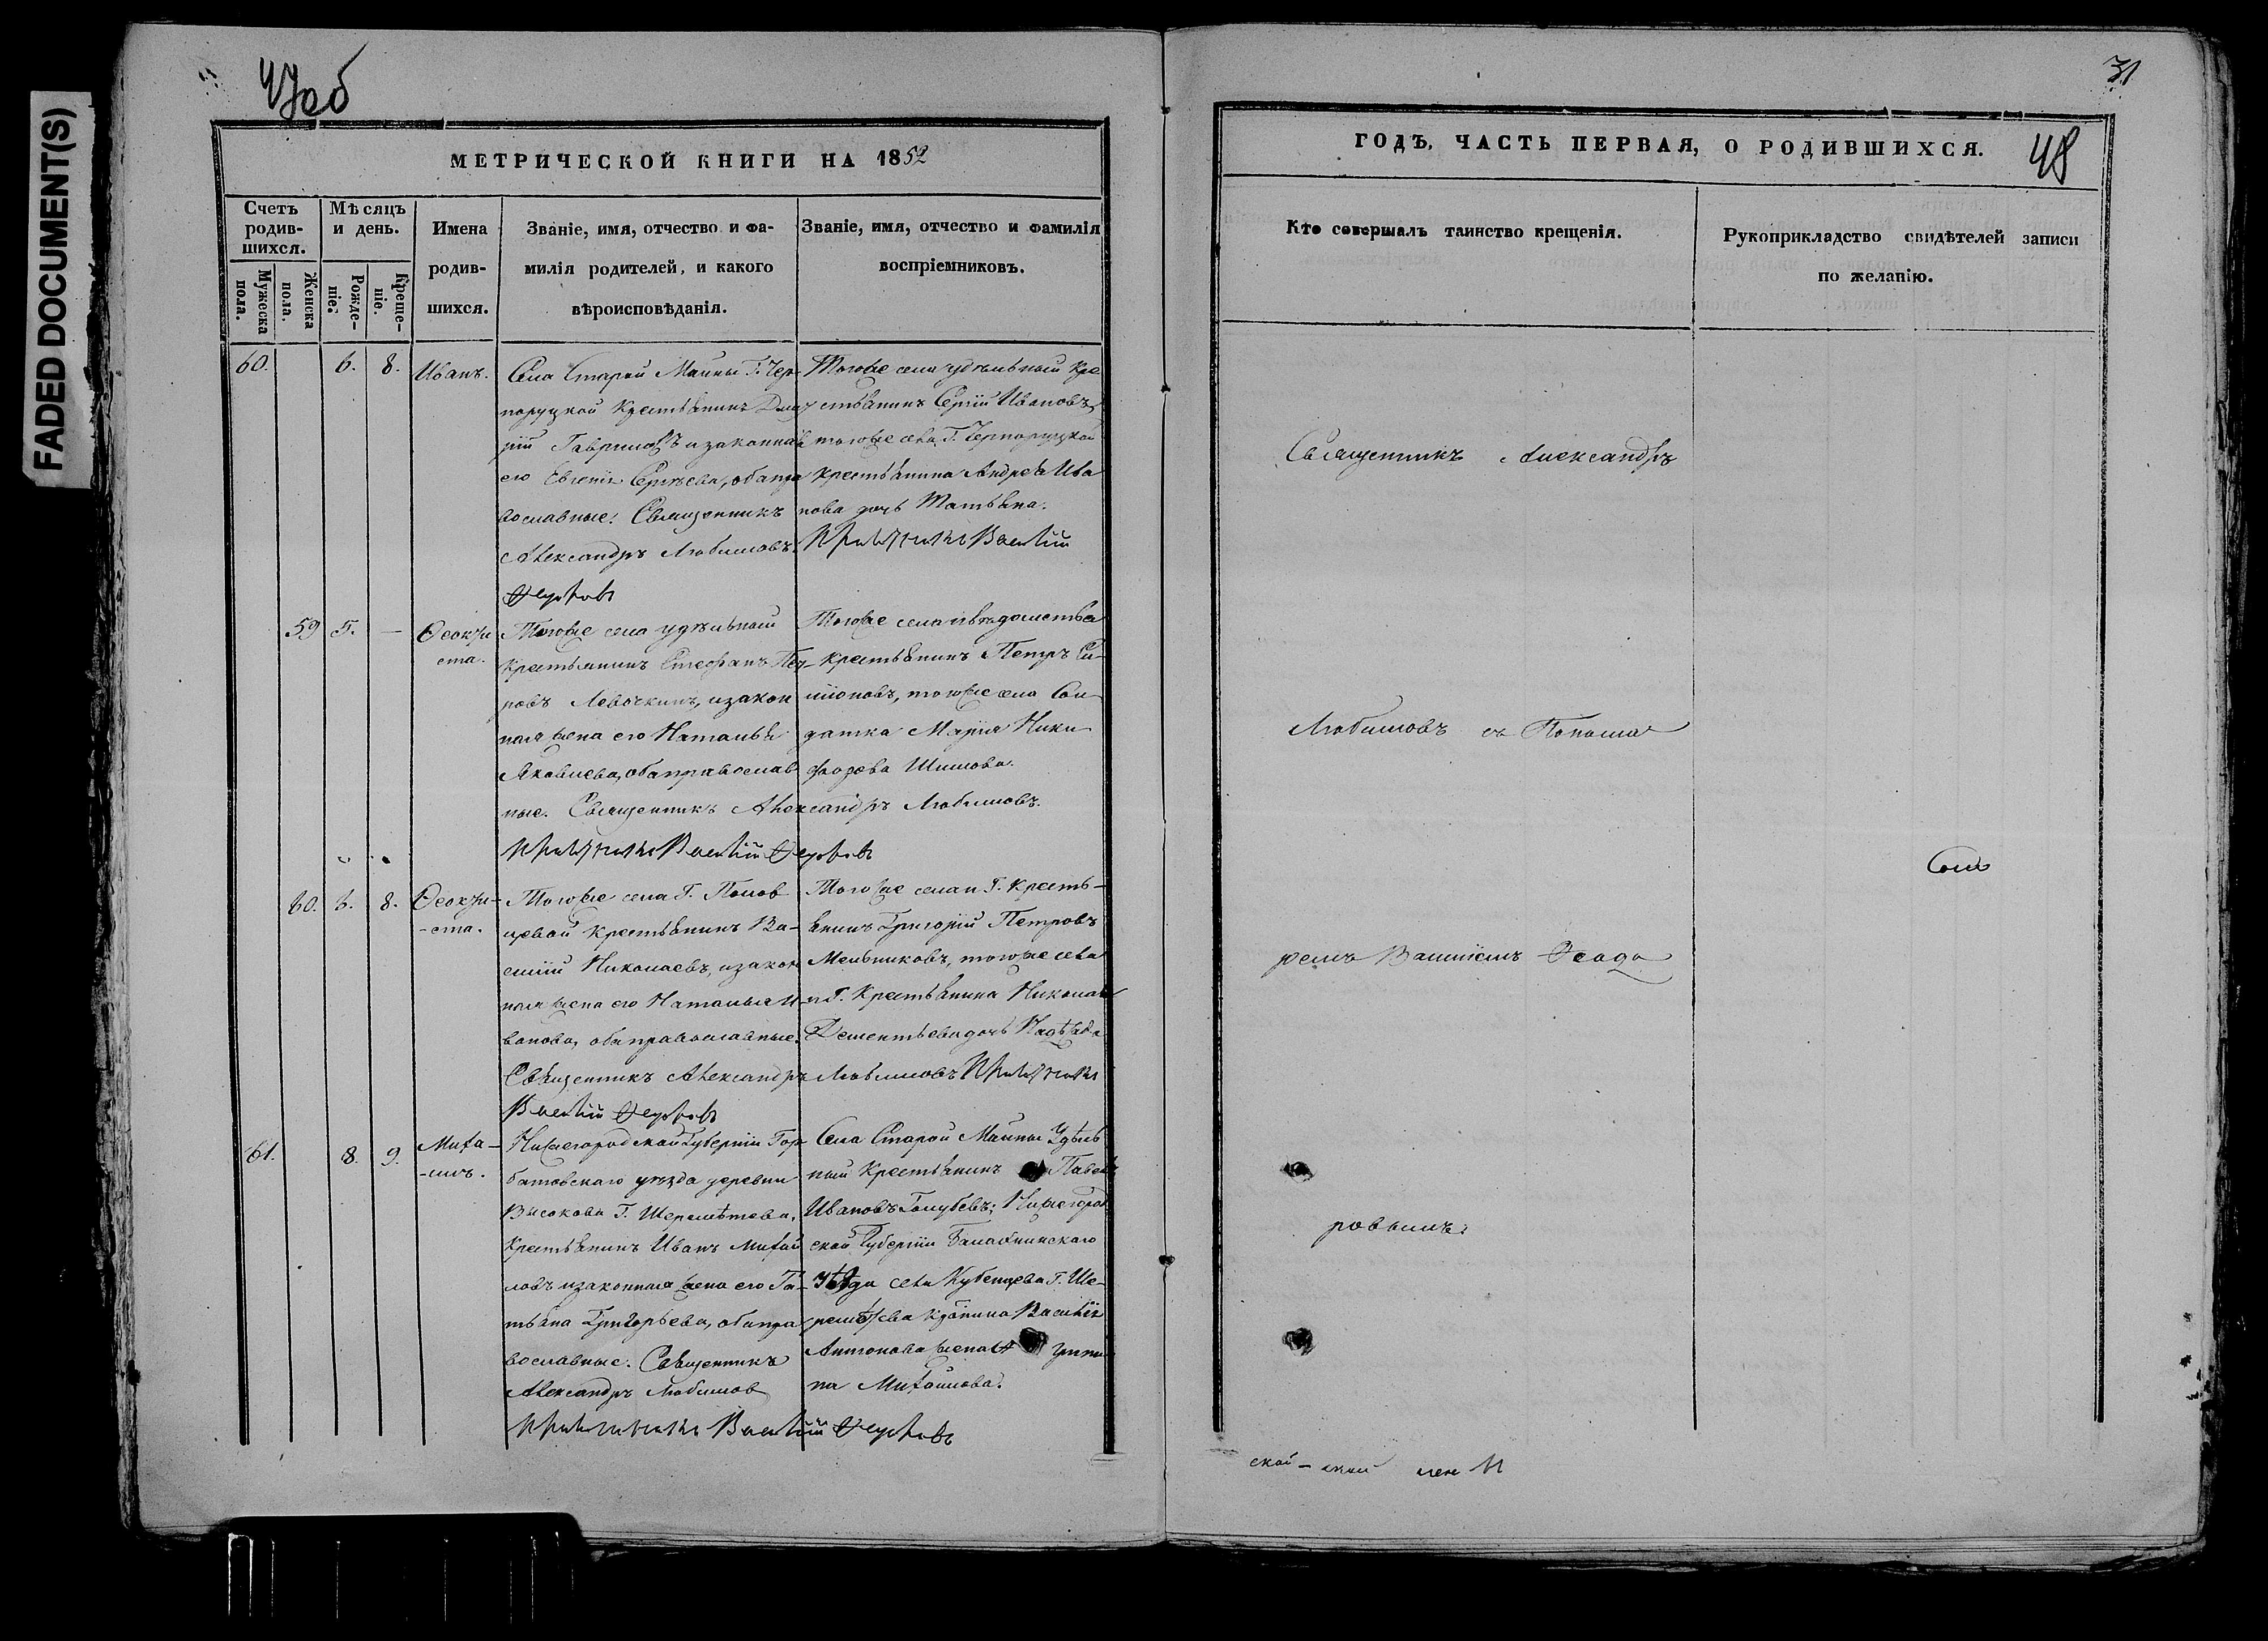 FADED DOCUMENT(S)
47об
МЕТРИЧЕСКОЙ КНИГИ НА 1852
Счетъ родив-шихся.
Мужеска пола.
Женска пола.
Мѣсяцъ и день.
Рожде-ніе.
Креще-ніе.
Имена
родив-
шихся.
Званіе, имя, отчество и фа-
милія родителей, и какого
вѣроисповѣданія.
Званіе, имя, отчество и фамилія
воспріемниковъ.
60. 6. 8. Иванъ.
Села Старой Майны Г. Чер-
норуцкой крестьянинъ Дми
рій Гавриловъ и законная
его Евгенія Сергѣева, оба пра
вославные. Священникъ
Александръ Любимовъ.
Тогоже села удѣльный кре
стьянинъ Сергій Ивановъ,
тогоже села Г. Черноруцкой
крестьянина Андрея Ива
нова дочь Татьяна.
Василій
Ѳедоровъ
59 5. — Ѳеокти
ста.
Тогоже села удѣльный
крестьянинъ Стефанъ Пет-
ровъ Левочкинъ, и закон
ная жена его Наталья
Яковлева, оба православ
ные. Священникъ Александръ Любимовъ.
Василій Ѳедоровъ
Тогоже села и вѣдомства
крестьянинъ Петръ Си-
міоновъ, тогоже села Сол
датка Марія Ники
форова Шишова.
60. 6. 8. Ѳеокти-
-ста.
Тогоже села Г. Попов
цевой крестьянинъ Ва-
силій Николаевъ, и закон
ная жена его Наталья И-
ванова, оба православные.
Священникъ Александръ Любимовъ
Василій Ѳедоровъ
Тогоже села и Г. кресть-
янинъ Григорій Петровъ
Мельниковъ, тогоже села
и Г. Крестьянина Николая
Дементьева дочь Надѣжда
61. 8. 9. Миха-
-илъ.
Нижегородской Губерніи Гор-
батовскаго уѣзда деревни
Высокова Г. Шереметева,
крестьянинъ Иванъ Михай
ловъ и законная жена его Та-
тьяна Григорьева, оба пра
вославные. Священникъ
Александръ Любимов
Василій Ѳедоровъ
Села Старой Майны Удѣль
ный крестьянинъ Павелъ
Ивановъ Голубевъ; Нижегород
ской Губерніи Балахнинскаго
Уѣзда села Кубенцева Г. Ше-
реметева Василія
Антонова жена
на Михайлова.
31
ГОДЪ, ЧАСТЬ ПЕРВАЯ, О РОДИВШИХСЯ.
48
Кто совершалъ таинство крещенія.
Рукоприкладство свидѣтелей записи
по желанію.
Священникъ Александръ
Любимовъ съ Понома
ремъ Василіемъ Ѳеодо
ровымъ.